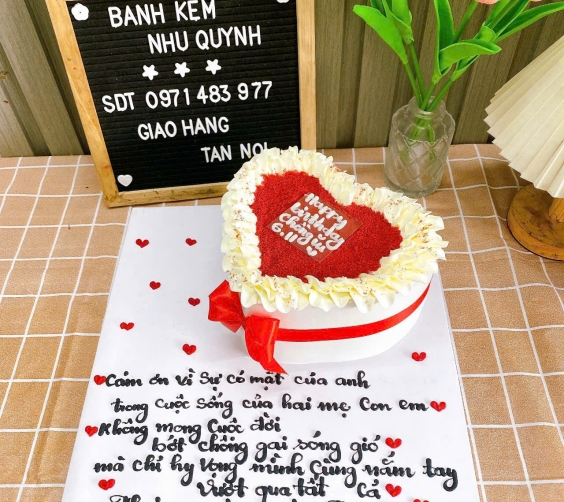 BANH KEM
NHU QUYNH
SDT 0971 483 977
GIAO HANG
TAN NOI
Happy
birthday
Chồng iu
6.11
Cảm ơn vì sự có mặt của anh
trong cuộc sống của hai mẹ con em
Không mong cuộc đời
bớt chông gai sóng gió
mà chỉ hy vọng mình cùng nắm tay
vượt qua tất cả